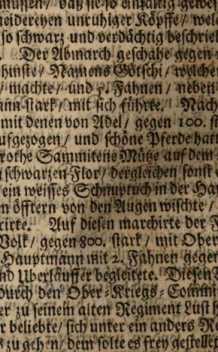 müssen/ daß sie so einfältig gewe
neidereyen unruhiger Köpffe/ wel
so schwarz und verdächtig beschrie
. Der Abmarch geschahe gegen
hinste/ Namens Götschi/ welche
machte/ und 7. Fahnen/ neben
ann starck/ mit sich führte. Nach
mit denen von Adel/ gegen 100. st
ufgezogen/ und schöne Pferde hat
rothe Sammitene Mütze auf dem
schwarzen Flor/ dergleichen sonst
ein weisses Schnuptuch in der Ha
n öfftern von den Augen wischte/
irte. Auf diesen marchirte der F
Volk/ gegen 800. starck/ mit Ober
Hauptmann mit 2. Fahnen gegen
nd Uberläuffer begleitete. Diesen
durch den Ober-Kriegs-Commi
er zu seinem alten Regiment Lust h
r beliebte/ sich unter ein anders R
zu gehn/ dem solte es frey gestelle